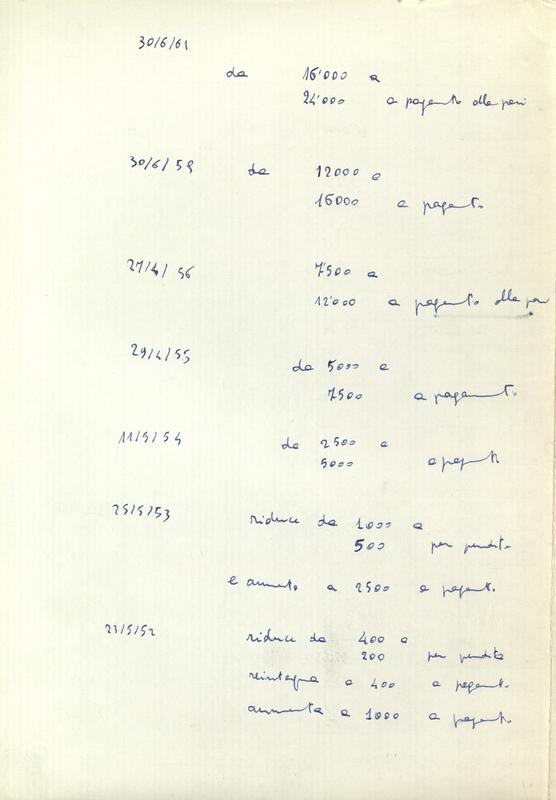 30/6/61
da 16'000 a
24'000 a pagamento alla pari
30/6/59 da 12000 a
16000 a pagamento
27/4/56 7'500 a
12'000 a pagamento alla pari
29/4/55 da 5000 a
7500 a pagamento
11/5/54 da 2500 a
5000 a pagamento
25/5/53 riduce da 1000 a
500 per perdite
e aumento a 2500 a pagamento
23/5/52 riduce da 400 a
200 per perdite
reintegra a 400 a pagamento
aumenta a 1000 a pagamento